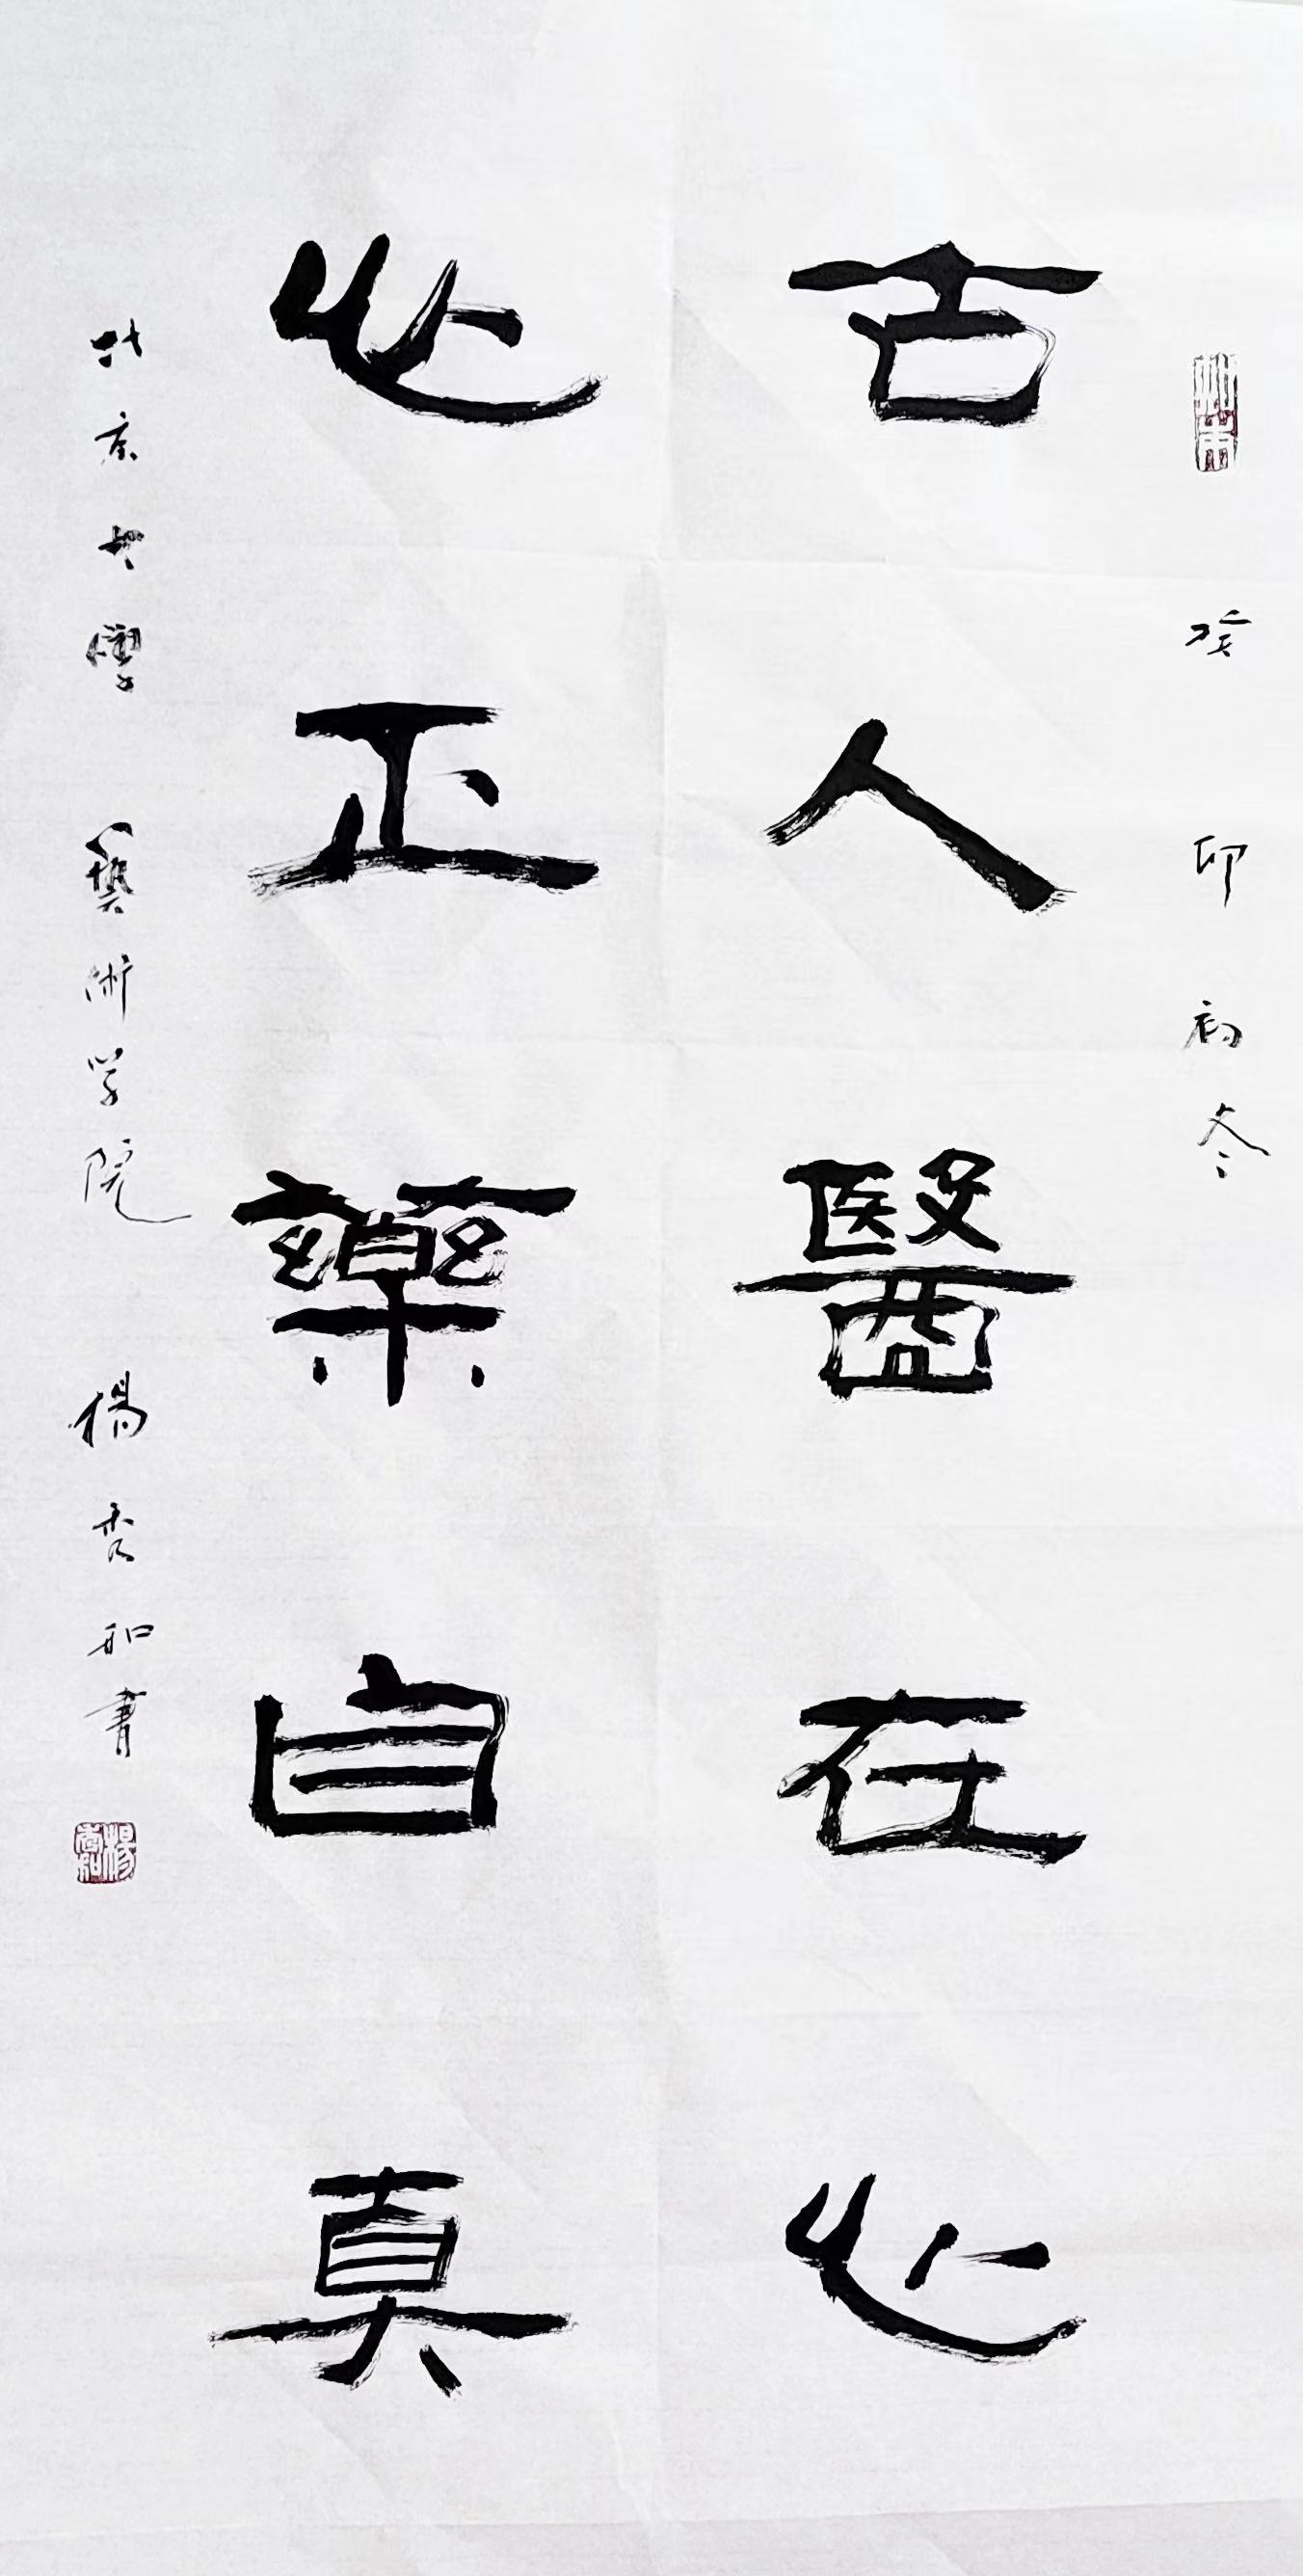 癸卯初冬
古人醫在心
心正藥自真
北京大學藝術学院楊秀和書